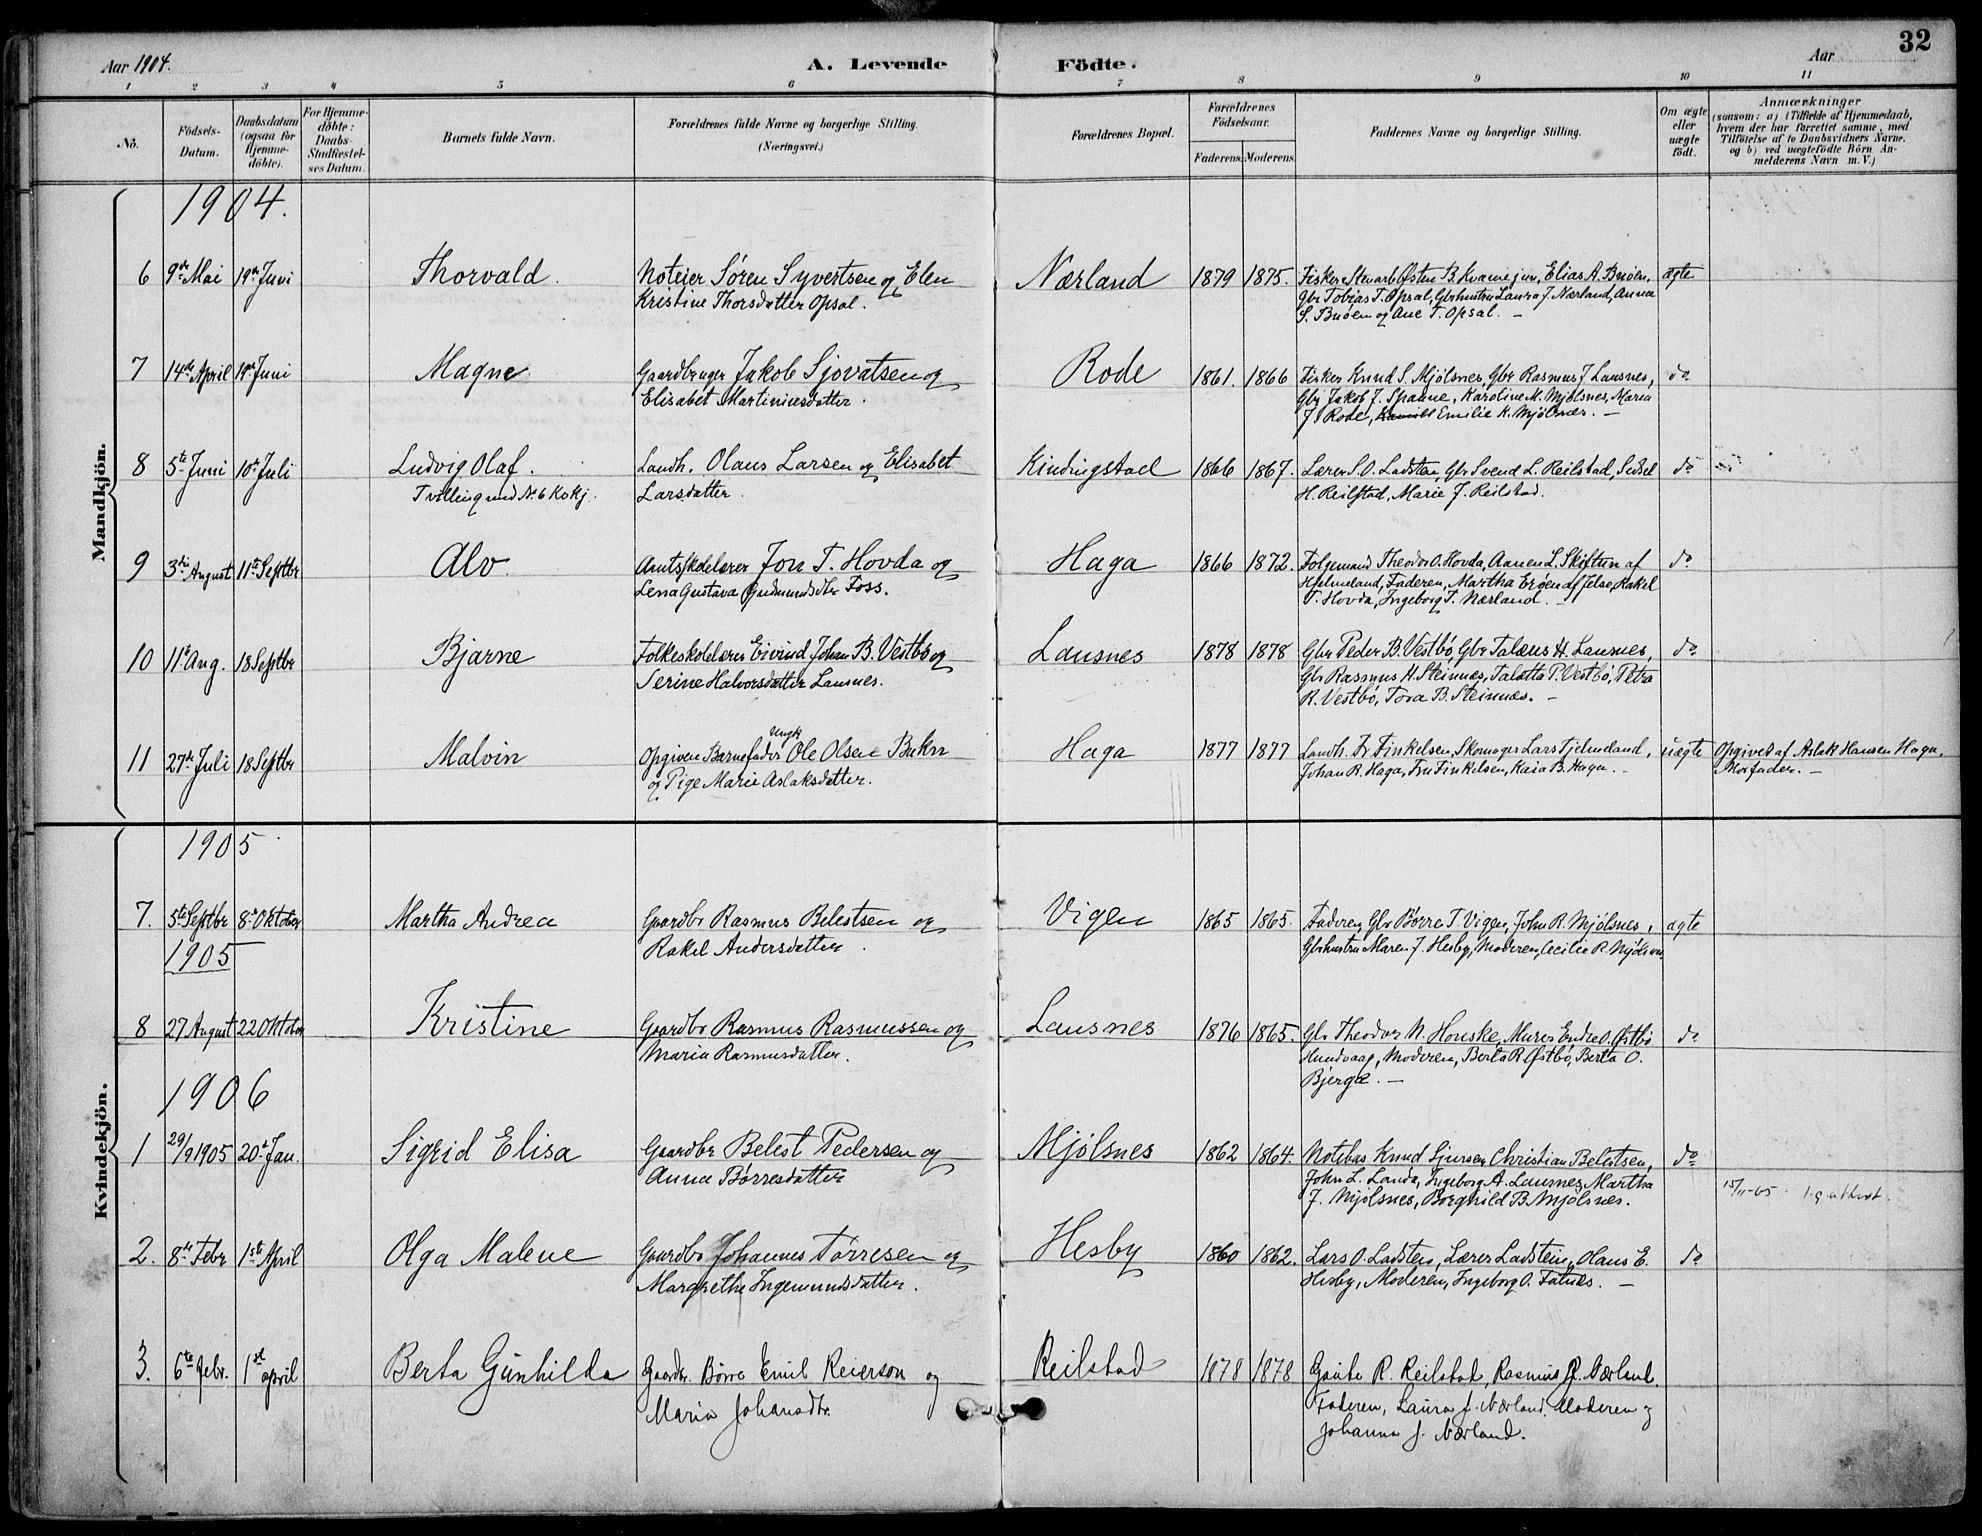 32
Aar 1904.
A. Levende Födte.
Aar
1 2 3 4 5 6 7 8 9 10 11
No.
Födsels-Datum.
Daabsdatum (ogsaa for Hjemme-döbte).
For Hjemme-döbte: Daabs-Stadfæstel-ses Datum.
Barnets fulde Navn.
Forældrenes fulde Navne og borgerlige Stilling. (Næringsvei.)
Forældrenes Bopæl.
Forældrenes Födselsaar.
Faderens. Moderens.
Faddernes Navne og borgerlige Stilling.
Om ægte eller uægte födt.
Anmærkninger
(saasom: a) i Tilfælde af Hjemmedaab,
hvem der har forrettet samme, med
Tilföielse af to Daabsvidners Navne.
og b) ved uægtefödte Börn An-
melderens Navn m. V.)
Mandkjön.
1904.
6 9de Mai 19de Juni Thorvald. Noteier Søren Syvertsen og Elen Nærland 1879 1875. Fisker Stuarb Østen B. Kvame jun, Elias A. Buøen, ægte
Kristine Thorsdatter Opsal. Gbr Tobias T. Opsal, Gbrhustru Laura J. Nærland, Anna
S. Buøen og Ane T. Opsal. —
7 14de April 19de Juni Magne Gaardbruger Jakob Sjovatsen og Rode 1861. 1866 Fisker Knud S. Mjølsnes, Gbr Rasmus J Lausnes, do
Elisabet Martiniusdatter. Gbr Jakob J. Spanne, Karoline M. Mjølsnes, Maren
J. Rode, Emilie K. Mjølsnes. —
8 5te Juni 10de Juli Ludvig Olaf. Landh. Olaus Larsen og Elisabet Kindingstad 1866 1867. Lærer S. O. Ladsten, Gbr Svend L. Reilstad, Sidsel do
Tvilling med No 6 Kvkj. Larsdatter. H. Reilstad, Marie J. Reilstad.
9 3die August 11te Septbr Alv. Amtsskolelærer Jon T. Hovda og Haga 1866 1872. Folgemand Theodor O. Hovda, Aanen L. Skiftun af do
Lena Gustava Gudmundsdtr Foss. Hjelmeland, Faderen, Martha Erøen af Jelse, Rakel
T. Hovda, Ingeborg T. Nærland. —
10 11te Aug. 18 Septbr Bjarne Folkeskolelærer Eivind Johan B. Vestbø og Lausnes 1878 1878 Gbr Peder B. Vestbø, Gbr Talæus H. Lausnes, do
Serine Halvorsdatter Lausnes. Gbr Rasmus H. Steinnæs, Talætta P. Vestbø, Petra
R. Vestbø, Tora B. Steinnæs. —
11 27de Juli 18 Septbr Malvin Opgiven Barnefader Ungk Ole Olsen Bukn Haga 1877 1877 Landh. Fr Finkelsen, Skomager Lars Tjelmeland, uægte Opgivet af Aslak Hansen Haga,
og Pige Marie Aslaksdatter. Johan R. Haga, Fru Finkelsen, Kaia B. Haga. — Morfader. —
Kvindekjön.
1905
7. 5te Septbr 8de Oktober Martha Andrea Gaardbr Rasmus Belestsen og Vigen 1865 1865. Faderen, Gbr Børre T. Vigen, John R. Mjølsnes, ægte
1905 Rakel Andersdatter. Gbrhustru Maren J. Hesby, Moderen, Cecilie R. Mjølsnes
8 27 August 22 Oktober Kristine Gaardbr Rasmus Rasmussen og Lausnes 1876 1865. Gbr Theodor N. Houske, Murer Endre O. Østbø do
Maria Rasmusdatter. Hundvaag, Moderen, Berta R Østbø, Berta O.
Bjerga. —
1906
1 29/9 1905 20de Jan. Sigrid Elisa Gaardbr Belest Pedersen og Mjølsnes 1862 1864. Notebas Knud Sjursen, Christian Belestsen, do
Anna Børresdatter John L. Landa, Ingeborg A. Lausnes, Martha
J. Mjølsnes, Borghild B. Mjølsnes. 15/11-65
2. 8de Febr 1ste April Olga Malene Gaardbr Johannes Tørresen og Hesby 1860 1862. Lars O. Ladsten, Lærer Ladstein, Olaus E. do
Margrethe Ingemundsdatter. Hesby, Moderen, Ingeborg O. Fatnes. —
3. 6te febr. 1st april Berta Gunhilda Gaardbr. Børre Emil Reierson og Reilstad 1878 1878 Gaute R. Reilstad, Rasmus J. Nærland.
Maria Johansdtr. Faderen, Laura J. Nærland. Moderen og
Johanna J. Nærland.